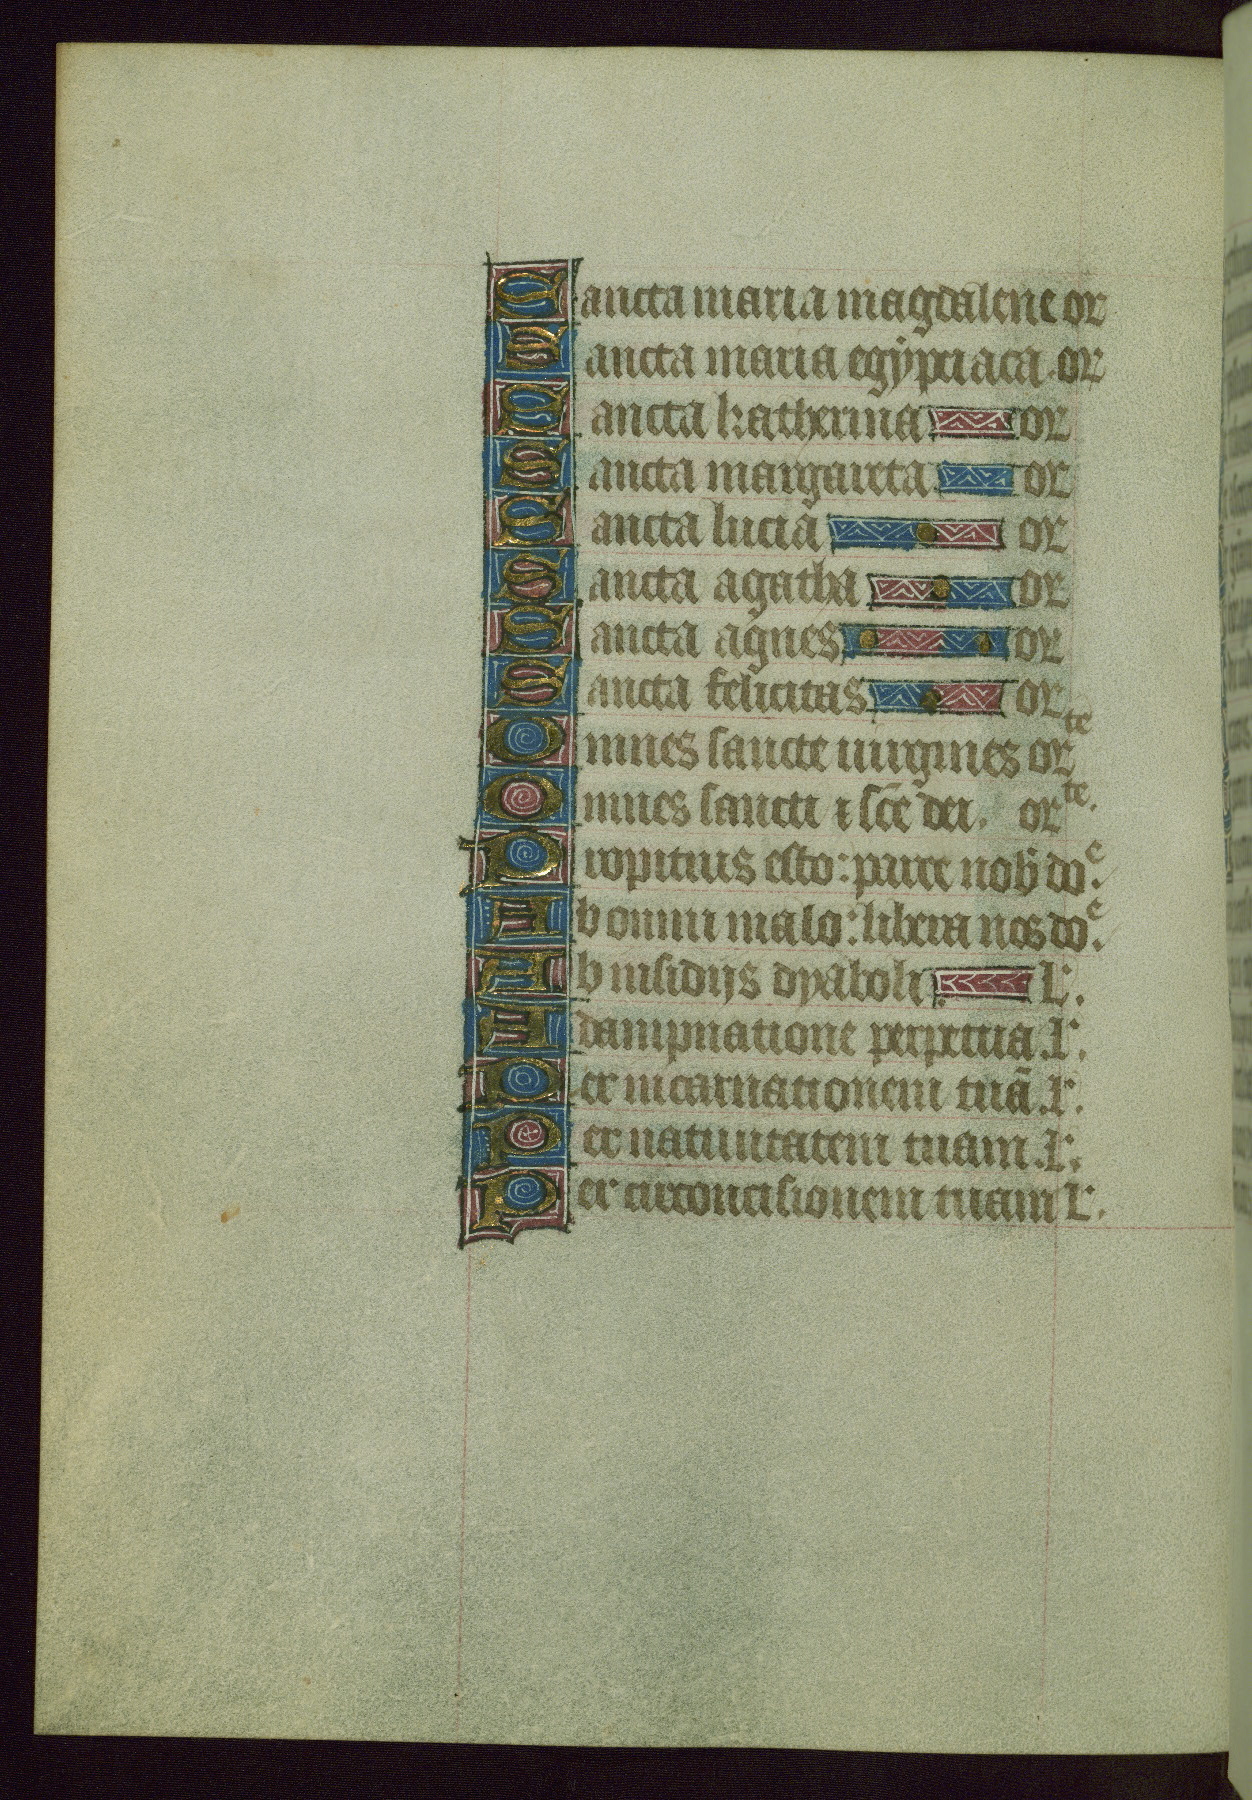 Sancta maria magdalene or
Sancta maria egypciaca. or
Sancta katherina or
Sancta margareta or
Sancta lucia or
Sancta agatha or
Sancta agnes or
Sancta felicitas or
Omnes sancte uirgines orte
Omnes sancti ⁊ sc̄e dei. orte.
Propitius esto: parce nob̄ doe.
Ab omni malo: libera nos doe.
Ab insidijs dyaboli L.
A dampnatione perpetua. L.
Per incarnationem tuā. L.
Per natiuitatem tuam. L.
Per circoncisionem tuam L.